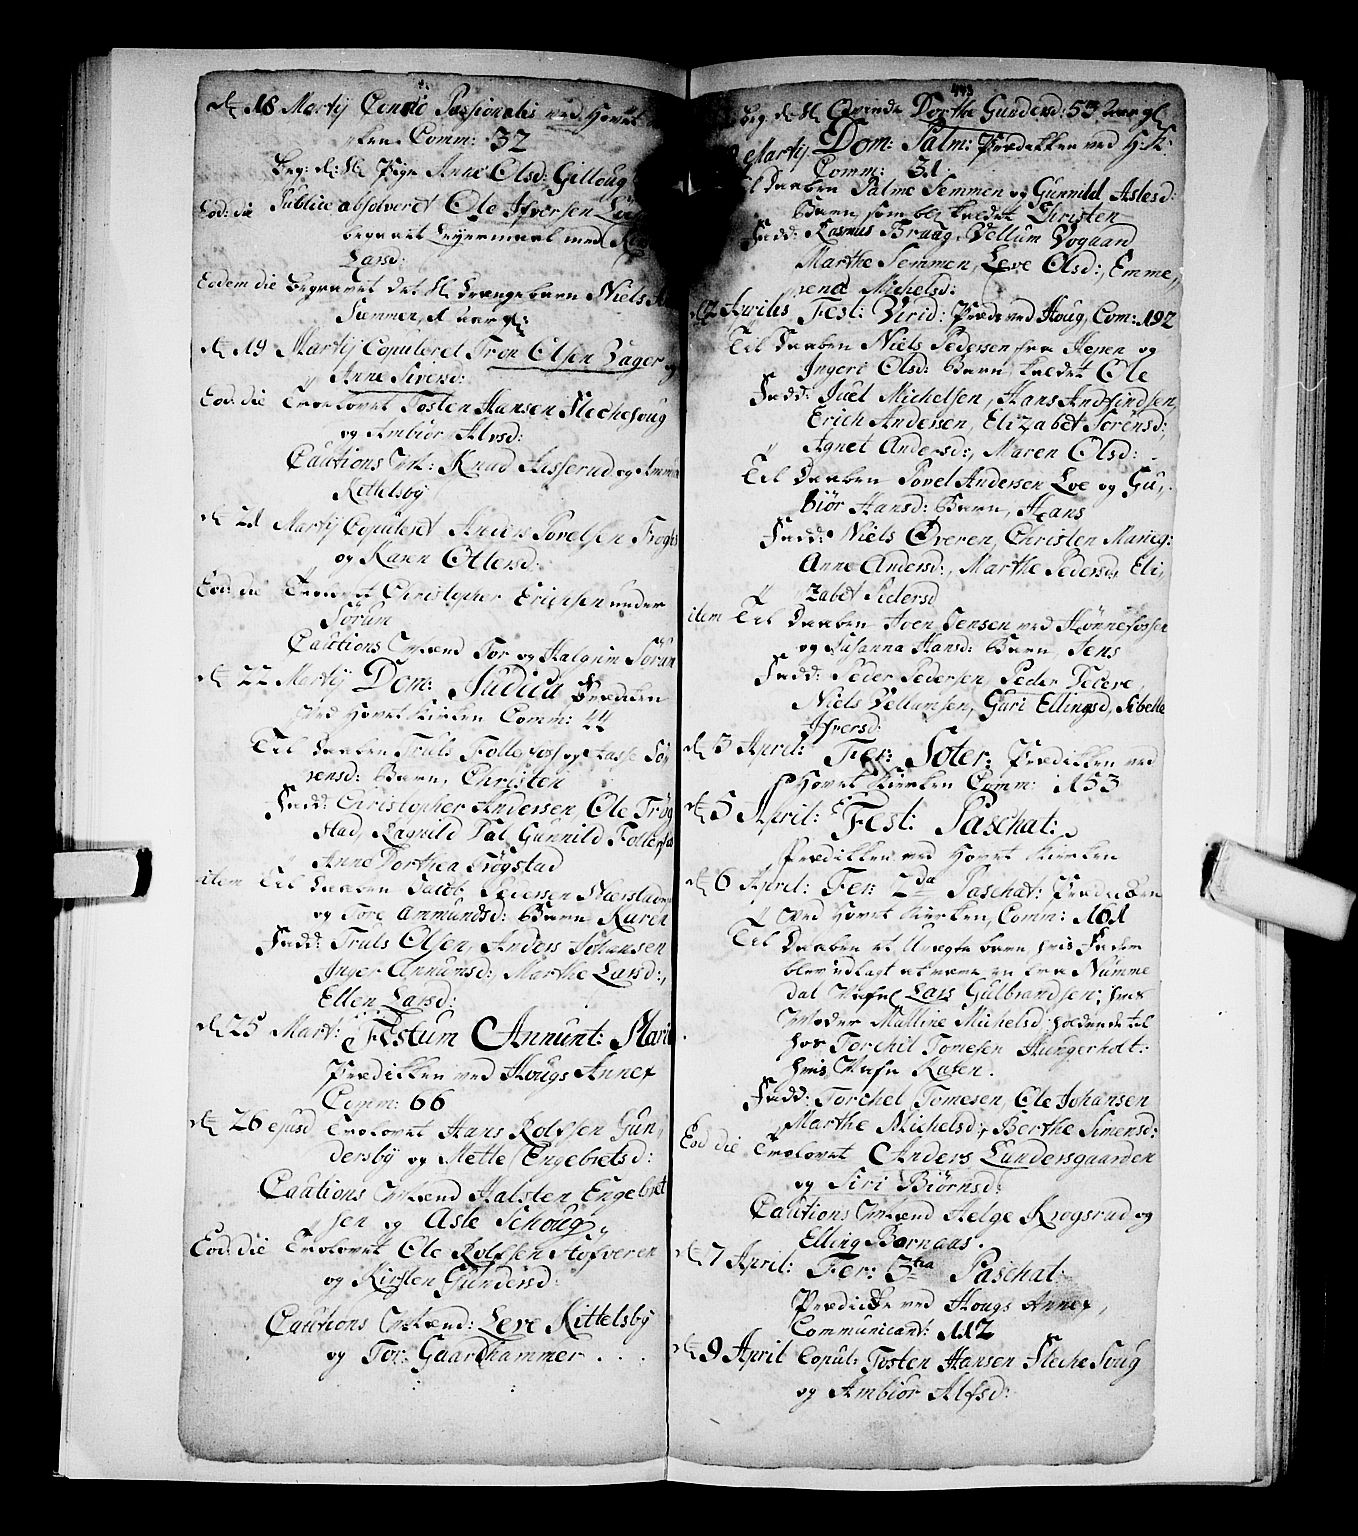 d. 18 Martij Concio Passionalis ved Hovet
Kirken Comm: 32
Beg: d: Sl: Pige Anne Olsd: Gilloug
Eod: die Publice absolveret Ole Ifversen
begaaet Leyermaal med
Larsd:
Eodem die begravet det Sl: Drængebarn Niels
Semmen, 1 aar gl:
d. 19 Martij Copuleret Tron Olsen Bager og
Anne Siversd:
Eod: die Trolovet Tosten Hansen Flechesoug
og Ambior Alvsd:
Cautions Mænd: Knud Aasserud og Ammun
Kittelsby
d. 21 Martij Copuleret Anders Povelsen Frogs
og Karen Ottersd:
Eod: die Trolovet Christopher Erichsen under
Sørum
Cautions Mænd Tor og Halgrim Søram
d. 22 Martij Dom: Judica Prædiken
ved Hovet Kirken Comm: 44
Til Daaben Truls Follefoss og Aasse Sø
rensd: Barn, Christen
Fadd: Christopher Andersen, Ole Trøg
stad, Ragnild Dal, Gunnild Follefoss
Anne Dorthea Trøgstad
item Til Daaben Jacob Pedersen Nærstad
og Tore Ammundsd: Barn Karen
Fadd: Truls Olsen, Anders Johansen
Inger Ammunsd:, Marthe Larsd:,
Ellen Larsd:
d. 25 Mart: Festum Annunt: Mariæ
Prædikken ved Hougs Annex
Comm: 66
d. 26 ejusd Trolovet Hans Rolfsen Gun,
dersby og Mette Engebretsd:
Cautions Mænd Halsten Engebret
sen og Asle Schoug
Eod: die Trolovet Ole Rolfsen Hofveren
og Kirsten Gundersd:
Cautions Mænd: Leve Kittelsby
og Tor Gaardhammer . . .
443
Beg. d: Sl: Qvinde Dorthe Gundersd: 53 Aar gl
Martij Dom: Palm: Prædikken ved H: K:
Comm: 31
Til Daaben Palme Semmen og Gunnild Aslesd:
Barn, som ble kaldet Christen
Fadd: Rasmus Braag, Vellum Vogaard
Marthe Semmen, Leve Olsd:, Emme,,
rence Michelsd:
d. 2 Aprilis Fest: Virid: Præd: ved Houg, Com: 192
Til Daaben Niels Pedersen fra Heren og
Ingeri Olsd: Barn, kaldet Ole
Fadd: Juel Michelsen, Hans Andfindsen,
Erich Andersen, Elizabet Sørensd:,
Agnet Andersd:, Maren Olsd:
Til Daaben Povel Andersen Loe og Gu,
biør Hansd: Barn, Hans
Fadd: Niels Overen, Christen Marieg:
Anne Andersd:, Marthe Pedersd, Eli,
zabet Pedersd
item Til Daaben Iven Jensen ved Hønnefossen
og Susanna Hansd: Barn, Jens
Fadd: Peder Pedersen, Peder Tecere,
Niels Vellumsen, Guri Ellingsd, Sibille
Ifversd:
d. 3 April: Fer: Soter: Prædikken ved
Hovet Kierken Comm: 153
d. 5 April: Fest: Paschat:
Prædikken ved Hovet Kierken
d. 6 April: Fer: 2da Paschat: Prædikken
ved Hovet Kierken, Comm: 101
Til Daaben et Uægte barn hvis Fader
blev udlagt at være en fra Numme
dal Nafnl Lars Gulbrandsen; hvis
Moder Malline Michelsd: holdende til
hos Torchil Tomesen Hungerholt:
hvis Nafn Karen.
Fadd: Torchel Tomesen, Ole Johansen
Marthe Michelsd:, Berthe Simensd:
Eod die Trolovet Anders Lundersgaarden
og Siri Biørnsd:
Cautions Mænd Helge Krogsrud og
Elling Bornaas.
d. 7 April: Fer: 3tia Paschat:
Prædicke ved Hougs Annex,
Communicant: 112
d. 9 April Copul: Tosten Hansen Fleche Soug
og Ambior Alfsd: